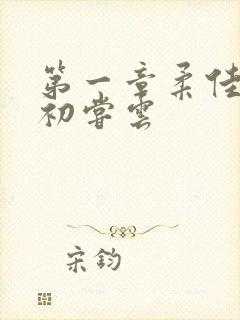 第一章柔佳
初尝云
宋钧